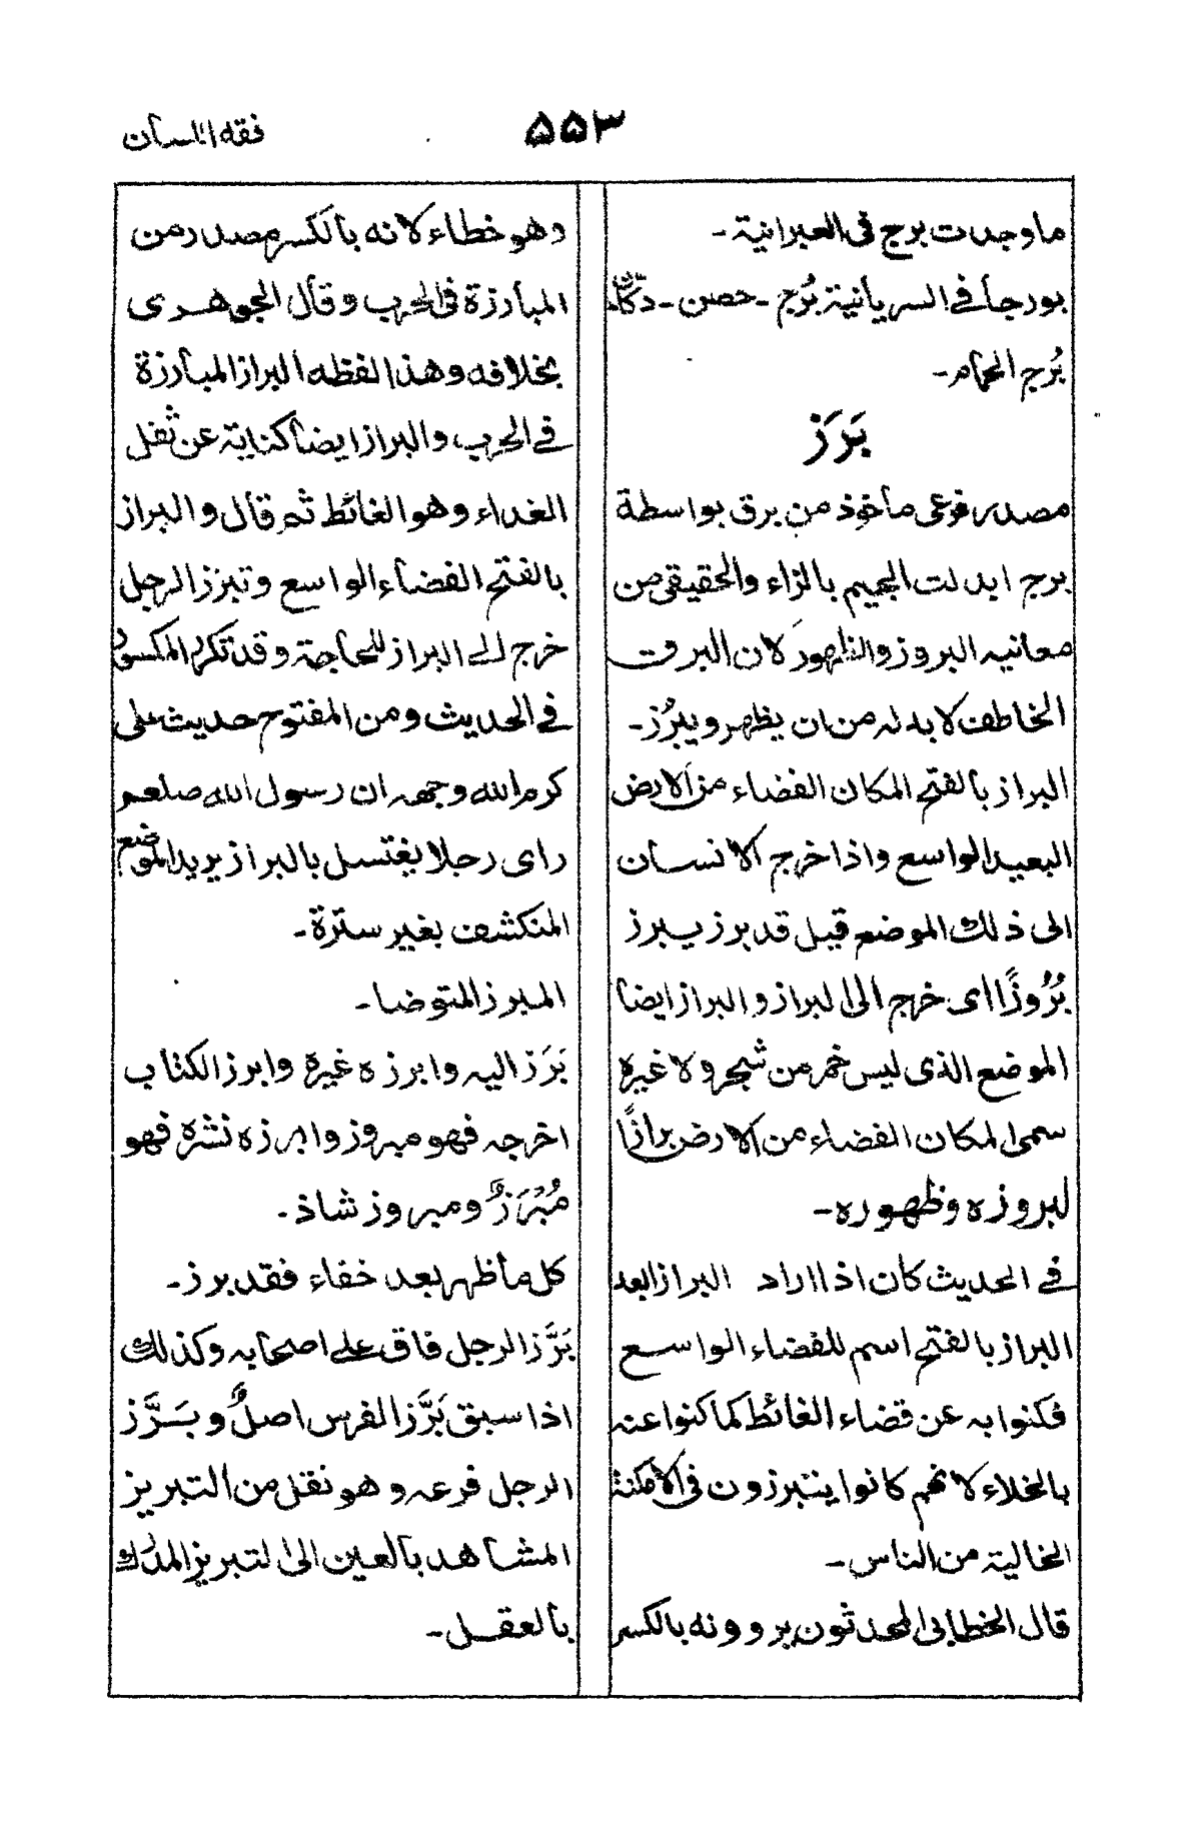 ۵۵۳
فقه اللسان
ما وجدت برج فى العبرانية -
بورجا فے السريانية بُرج - حصن - دكّة
بُرج الحمام -
بَرَز
مصدر فرعى مأخوذ من برق بواسطة
برج ابدلت الجيم بالزاء والحقيقى من
معانيه البروز والظهور لان البرق
الخاطف لا بد له من ان يظهر ويبرُز -
البراز بالفتح المكان الفضاء من الارض
البعيد الواسع واذا خرج الانسان
الى ذلك الموضع قيل قد برز يبرز
بُرُوزًا اى خرج الى البراز والبراز ايضا
الموضع الذى ليس خمر من شجر ولا غيره
سمى المكان الفضاء من الارض برازًا
لبروزه وظهوره -
فے الحديث كان اذا اراد البراز ابعد
البراز بالفتح اسم للفضاء الواسع
فكنوا به عن قضاء الغائط كما كنوا عنه
بالخلاء لانهم كانوا يتبرزون فى الأمكنة
الخالية من الناس -
قال الخطابى المحدثون يروونه بالكسر
وهو خطاء لانه بالكسر مصدر من
المبارزة فى الحرب وقال الجوهرى
بخلافه وهذا لفظه البراز المبارزة
فے الحرب والبراز ايضا كناية عن ثفل
الغداء وهو الغائط ثم قال والبراز
بالفتح الفضاء الواسع وتبرز الرجل
خرج الے البراز للحاجة وقد تكرر المكسور
فے الحديث ومن المفتوح حديث على
كرم الله وجهه ان رسول الله صلعم
راى رجلا يغتسل بالبراز يريد الموضع
المنكشف بغير سترة -
المبرز المتوضا -
بَرَز اليه وابرزه غيره وابرز الكتاب
اخرجه فهو مبروز وابرزه نشره فهو
مُبْرَزٌ ومبروز شاذ -
كل ما ظهر بعد خفاء فقد برز -
بَرَّز الرجل فاق على اصحابه وكذلك
اذا سبق بَرَّز الفرس اصلٌ وبَرَّز
الرجل فرعه وهو نقل من التبريز
المشاهد بالعين الى التبريز المدرك
بالعقل -